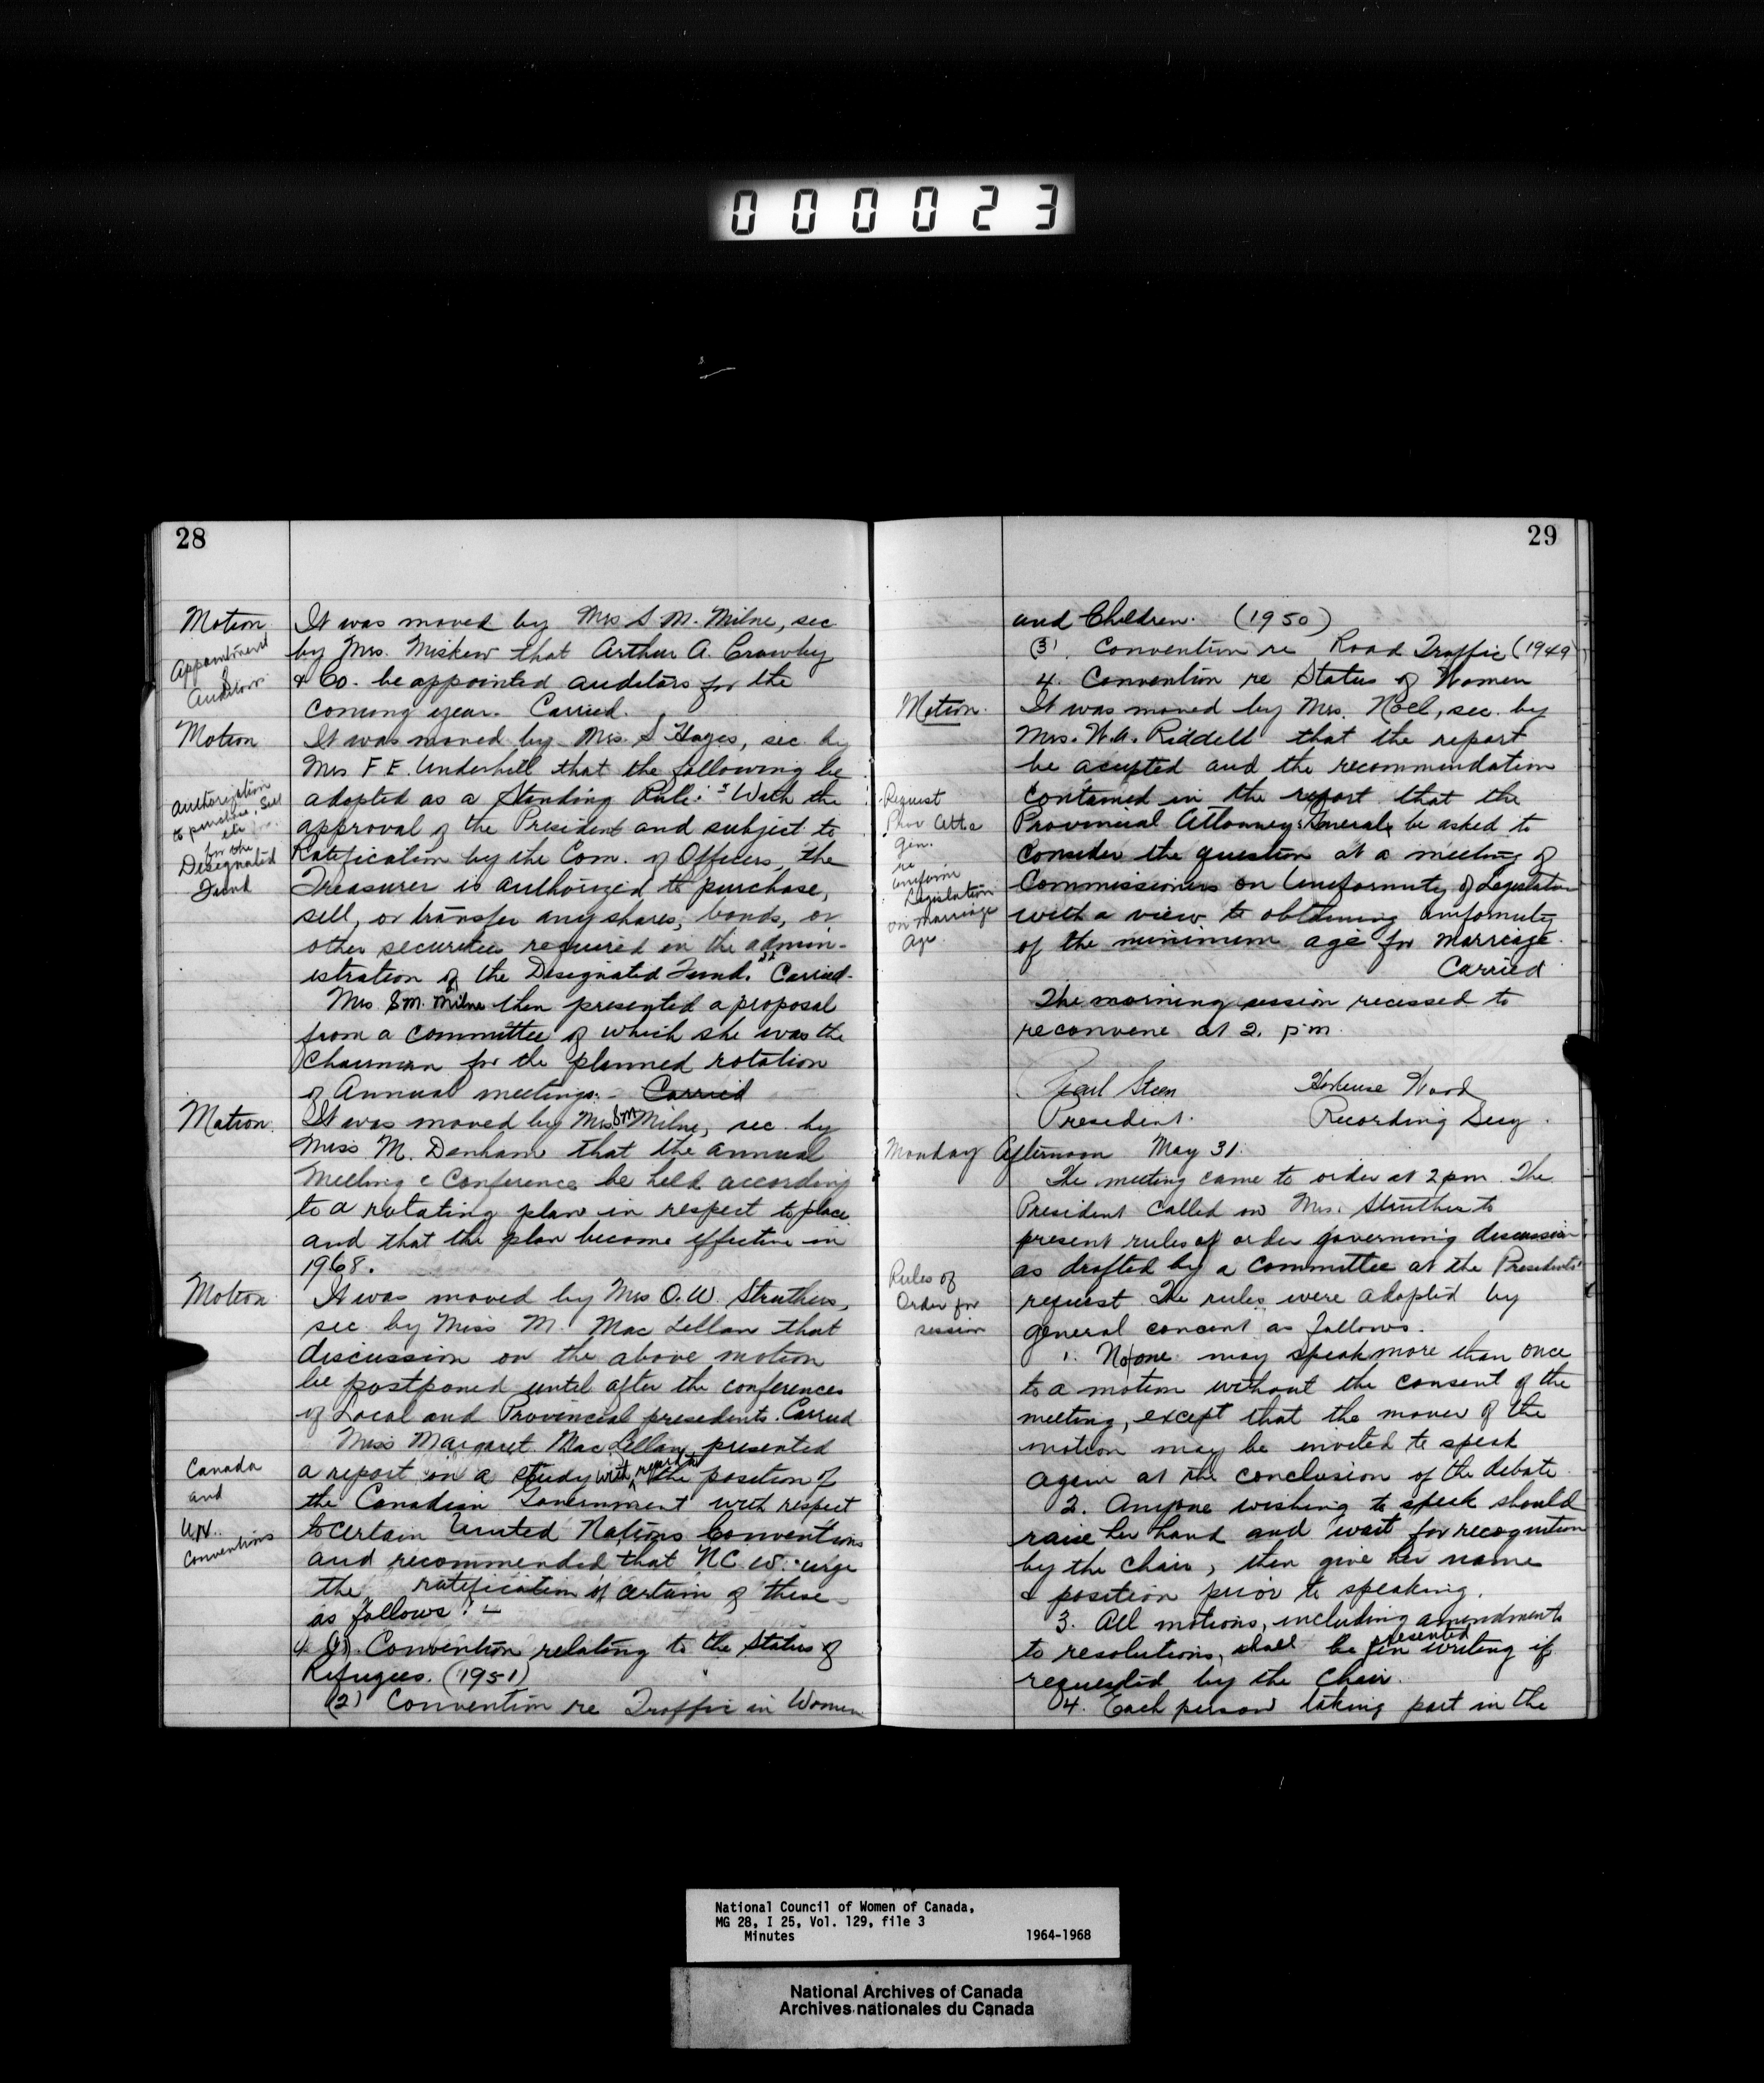 000023
28
Motion
It was moved by Mrs S. M. Milne, sec
by Mrs. Miskew that Arthur A. Crawley
Appointment
of
Auditors
& Co. be appointed auditors for the
coming year. Carried.
Motion
It was moved by Mrs. S Hayes, sec. by
Mrs F E. Underhill that the following be
Authorization
to purchase, Sell
etc
for the
Designated
Fund
adopted as a Standing Rule: "With the
approval of the President and subject to
Ratification by the Com. of Officers, the
Treasurer is authorized to purchase,
sell, or transfer any shares, bonds, or
other securities required in the admin-
istration of the Designated Fund." Carried.
Mrs. S.M. Milne then presented a proposal
from a committee of which she was the
Chairman for the planned rotation
of Annual meetings. - Carried
Motion.
It was moved by Mrs S M Milne, sec. by
Miss M. Denham that the annual
Meeting & Conference be held according
to a rotating plan in respect to place
and that the plan become effective in
1968.
Motion
It was moved by Mrs O. W. Struthers,
sec by Miss M. Mac Lellan that
discussion on the above motion
be postponed until after the conferences
of Local and Provincial presidents. Carried
Miss Margaret Mac Lellan presented
Canada
and
U.N.
Conventions
a report on a study with regard to the position of
the Canadian Government with respect
to certain United Nations Conventions
and recommended that N.C.W. urge
the ratification of certain of these
as follows: -
(1). Convention relating to the Status of
Refugees. (1951)
(2) Convention re Traffic in Women
29
and Children. (1950)
(3). Convention re Road Traffic (1949)
4. Convention re Status of Women
Motion.
It was moved by Mrs. Noel, sec. by
Mrs. W.A. Riddell that the report
be accepted and the recommendation
Request
Prov Att.
Gen.
re
uniform
Legislation
on marriage
Age.
contained in the report that the
Provincial Attorneys General be asked to
consider the question at a meeting of
Commissioners on Uniformity of Legislation
with a view to obtaining uniformity
of the minimum age for marriage.
Carried
The morning session recessed to
reconvene at 2. p.m.
Pearl Steen Hortense Wood
President. Recording Secy.
Monday Afternoon May 31.
The meeting came to order at 2 pm. The
President called on Mrs. Struthers to
present rules of order governing discussion
Rules of
Order for
session
as drafted by a committee at the Presidents'
request. The rules were adopted by
general concent as follows.
1. No one may speak more than once
to a motion without the consent of the
meeting, except that the mover of the
motion may be invited to speak
again at the conclusion of the debate.
2. Anyone wishing to speak should
raise her hand and wait for recognition
by the chair, then give her name
& position prior to speaking.
3. All motions, including amendments
to resolutions, shall be presented in writing if
requested by the Chair.
4. Each person taking part in the
National Council of Women of Canada,
MG 28, I 25, Vol. 129, file 3
Minutes 1964-1968
National Archives of Canada
Archives nationales du Canada